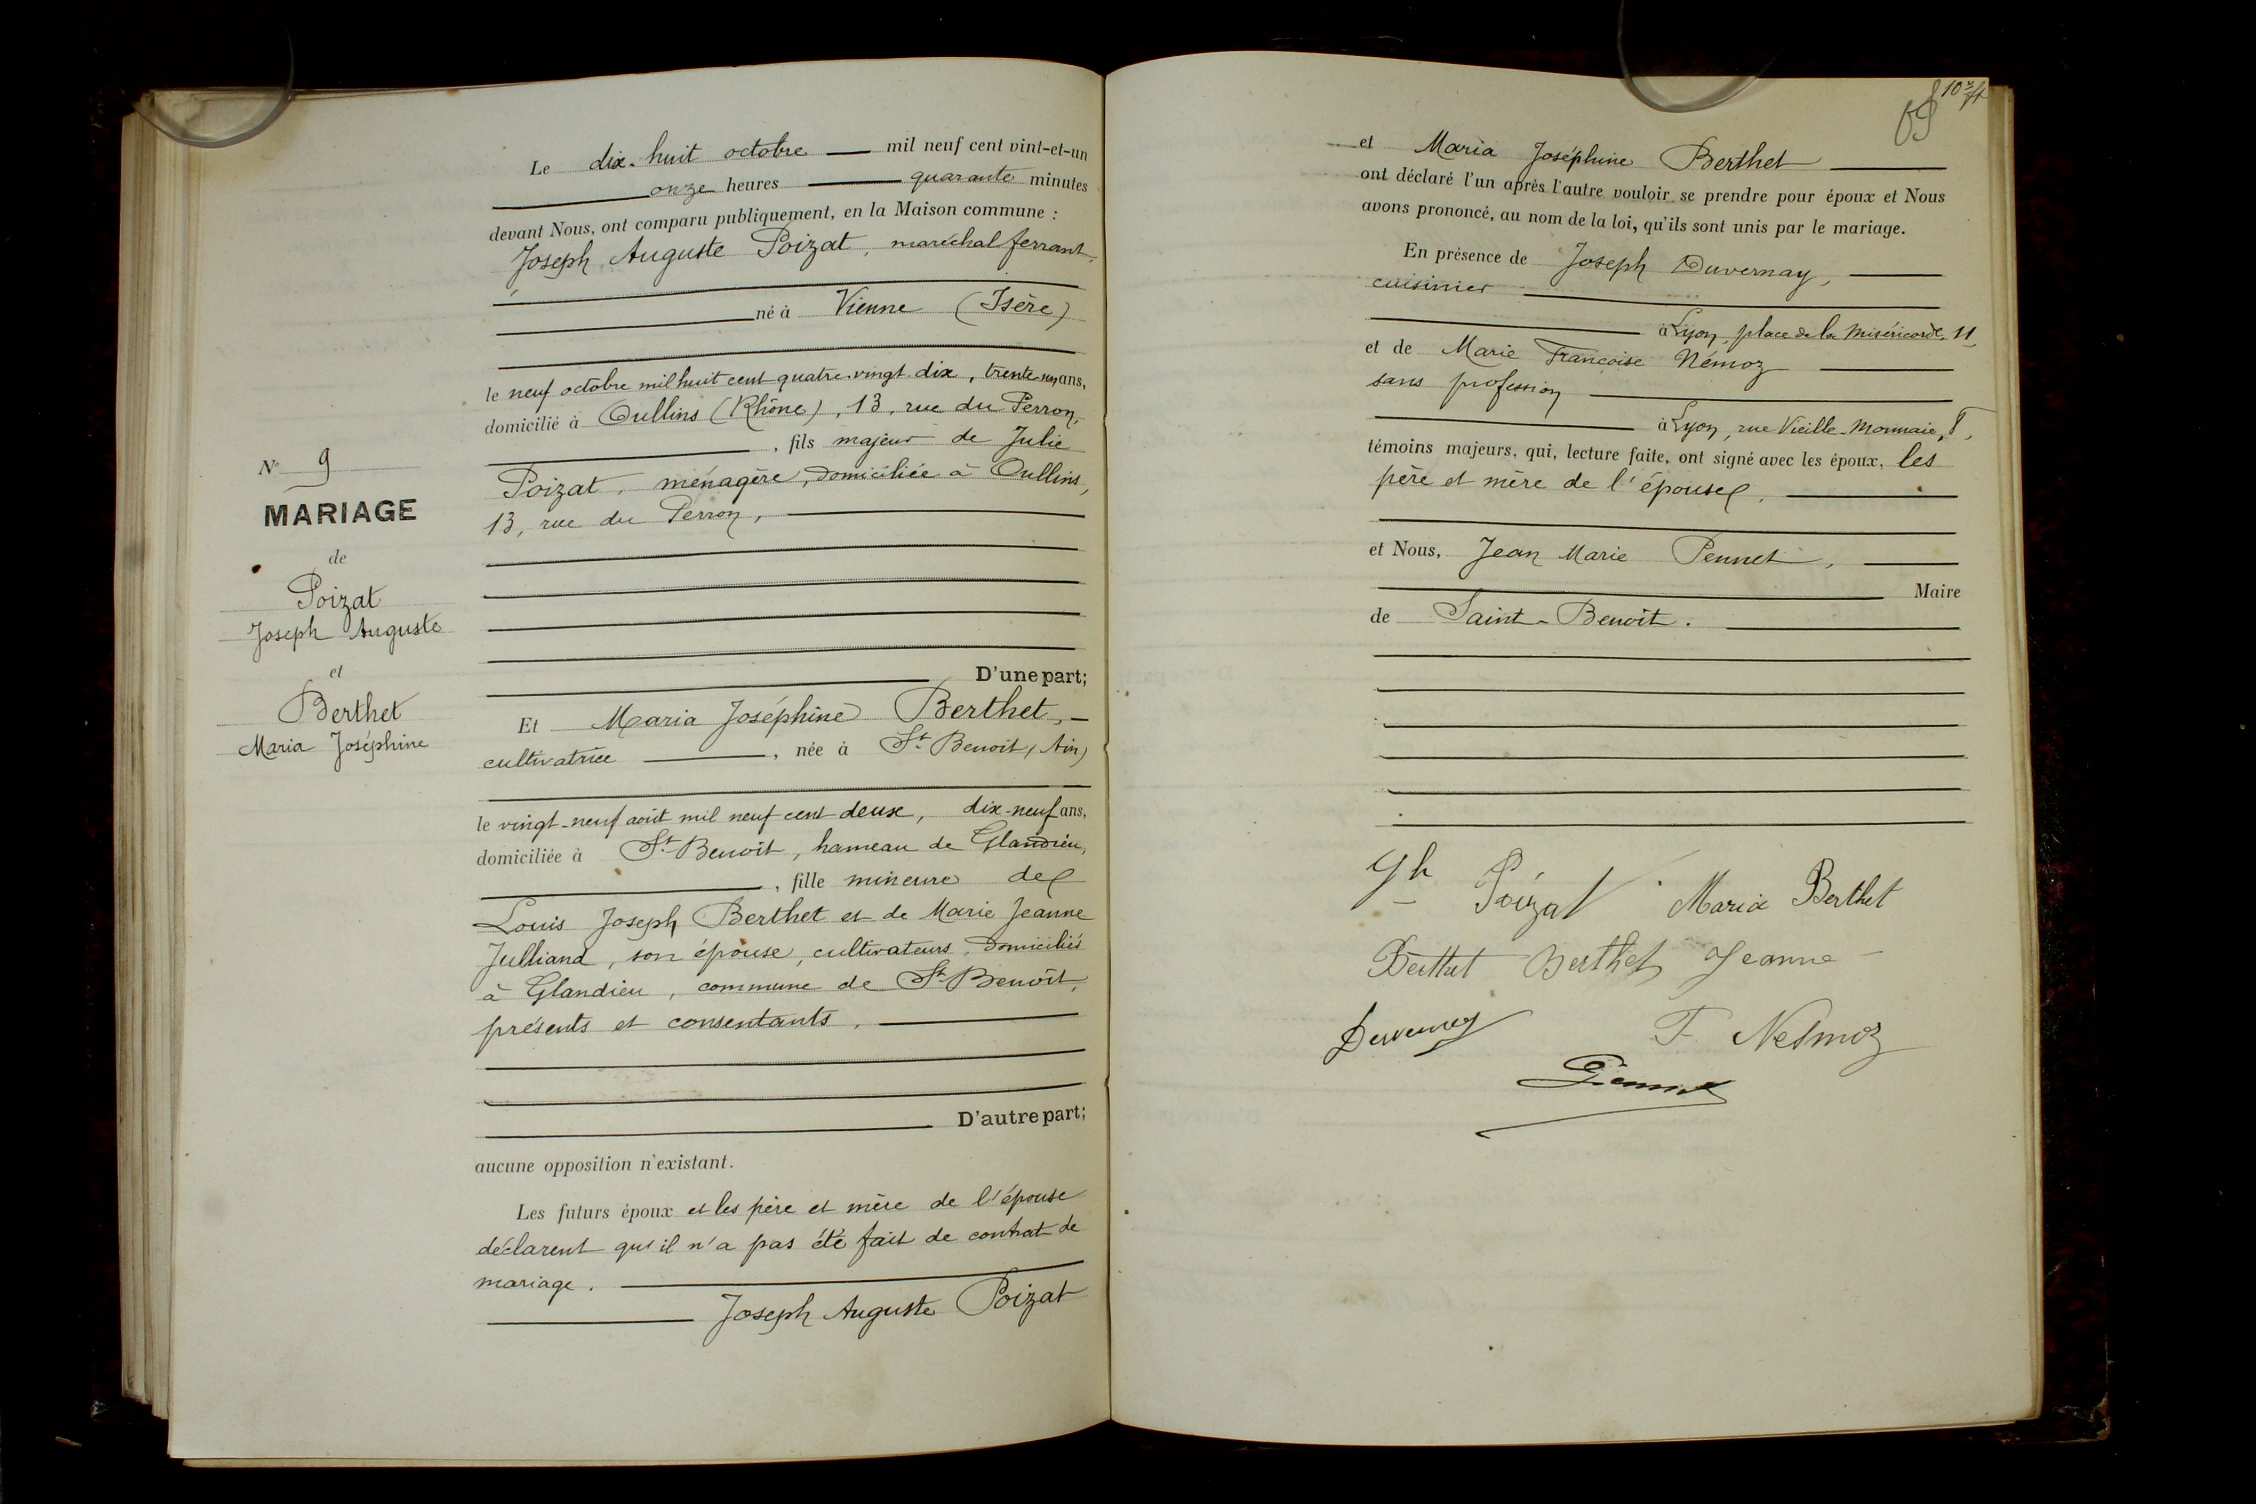 N° 9
MARIAGE
de
Poizat
Joseph Auguste
et
Berthet
Maria Joséphine
Le dix-huit octobre mil neuf cent vint-et-un
onze heures quarante minutes
devant Nous, ont comparu publiquement, en la Maison commune :
Joseph Auguste Poizat, maréchal ferrant,
né à Vienne (Isère)
le neuf octobre mil huit cent quatre-vingt-dix, trente-un ans,
domicilié à Oullins (Rhône), 13, rue du Perron,
, fils majeur de Julie
Poizat, ménagère, domiciliée à Oullins,
13, rue du Perron,
D'une part;
Et Maria Joséphine Berthet,
cultivatrice , née à St Benoît (Ain)
le vingt-neuf août mil neuf cent deux, dix-neuf ans,
domiciliée à St Benoît, hameau de Glandieu,
, fille mineure de
Louis Joseph Berthet et de Marie Jeanne
Julliand, son épouse, cultivateurs, domiciliés
à Glandieu, commune de St Benoît,
présents et consentants.
D'autre part;
aucune opposition n'existant.
Les futurs époux et les père et mère de l'épouse
déclarent qu'il n'a pas été fait de contrat de
mariage.
Joseph Auguste Poizat
et Maria Joséphine Berthet
ont déclaré l'un après l'autre vouloir se prendre pour époux et Nous
avons prononcé, au nom de la loi, qu'ils sont unis par le mariage.
En présence de Joseph Duvernay,
cuisinier
à Lyon, place de la Miséricorde, 11,
et de Marie Françoise Némoz
sans profession
à Lyon, rue Vieille-Monnaie,
témoins majeurs, qui, lecture faite, ont signé avec les époux, les
père et mère de l'épouse,
et Nous, Jean Marie Pennet,
Maire
de Saint-Benoît.
Jh Poizat Maria Berthet
Berthet Berthet Jeanne
Duvernay F. Nesmoz
Pennet